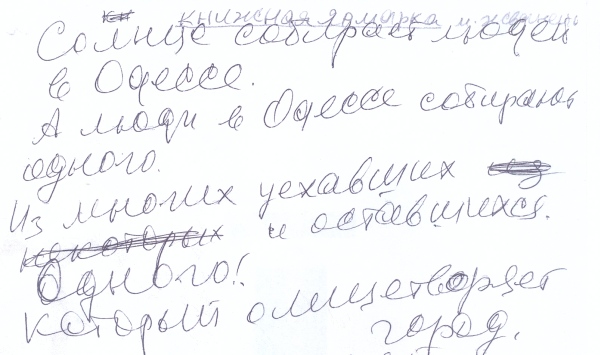 книжная ярмарка
Солнце собирает людей
в Одессе.
А люди в Одессе собирают
одного.
Из многих уехавших
и оставшихся.
Одного!
который олицетворяет
город.